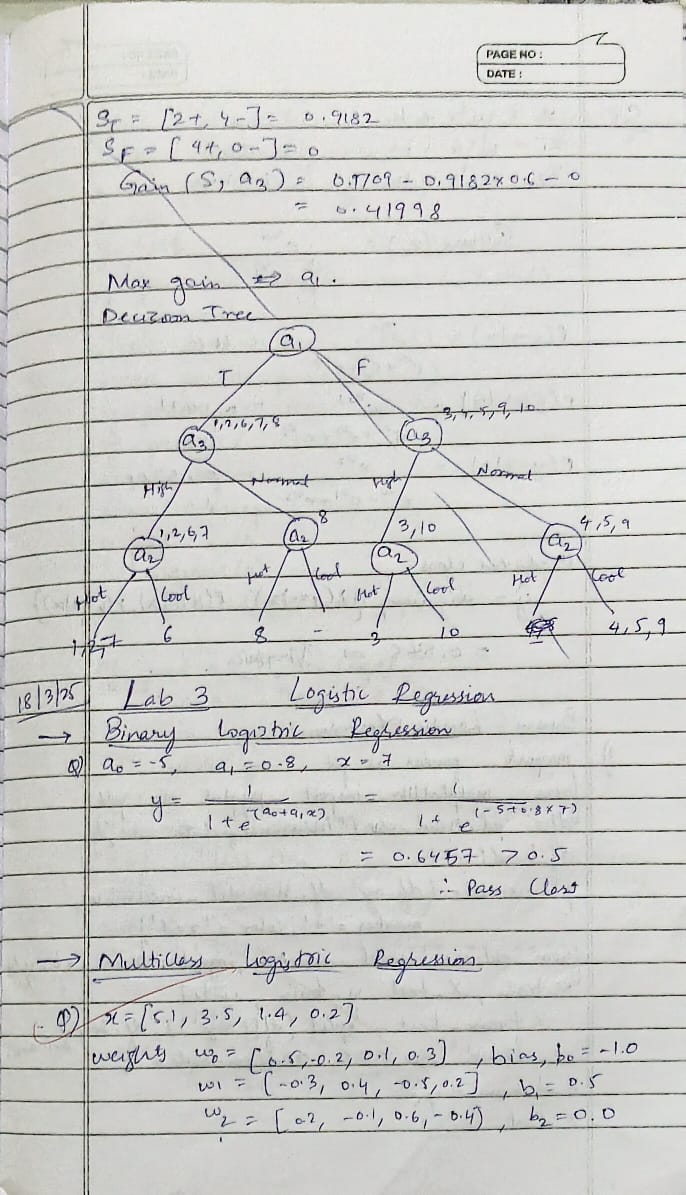 PAGE NO :
DATE :
S_T = [2+, 4-] = 0.9182
S_F = [4+, 0-] = 0
Gain (S, a3) = 0.9709 - 0.9182×0.6 - 0
= 0.41998
Max gain => a1.
Decision Tree
a1
T F
1,2,6,7,8 3,4,5,9,10
a3 a3
High Normal High Normal
1,2,6,7 8 3,10 4,5,9
a2 a2 a2 a2
Hot Cool Hot Cool Hot Cool Hot Cool
1,2,7 6 8 - 3 10 4,5,9
18/3/25 Lab 3 Logistic Regression
→ Binary Logistric Regression
Q) a0 = -5, a1 = 0.8, x = 7
y = 1 / 1 + e^-(a0+a1x) = 1 / 1 + e^(-5+0.8×7)
= 0.6457 > 0.5
∴ Pass Class
→ Multiclass Logistric Regression
Q) x = [5.1, 3.5, 1.4, 0.2]
weights w0 = [0.5, -0.2, 0.1, 0.3], bias, b0 = -1.0
w1 = [-0.3, 0.4, -0.5, 0.2], b1 = 0.5
w2 = [0.2, -0.1, 0.6, -0.4), b2 = 0.0